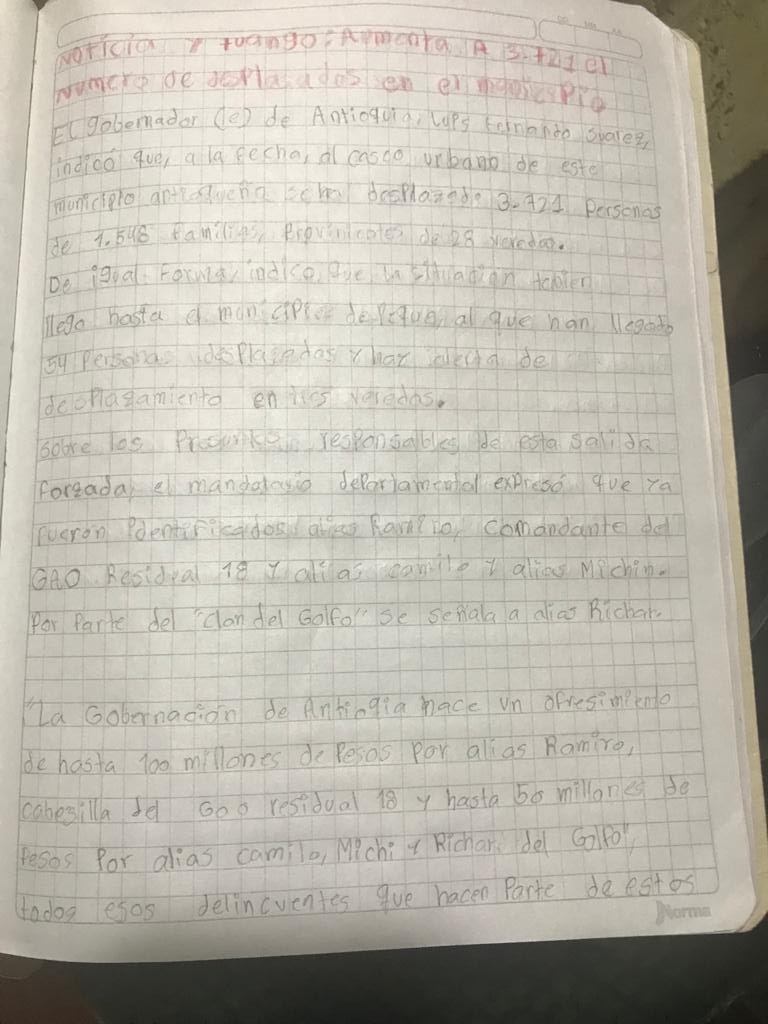 NOTICIA Y tuango: Aumenta A 3.721 el
numero de desplasados en el municipio
El gobernador (e) de Antioquia, Luis Fernando Suarez,
indicó que, a la fecha, al casco urbano de este
municipio antioqueño se ha desplazado 3.721 personas
de 1.548 familias, provinientes de 28 veredas.
De igual Forma, indico, que la situación tabien
llego hasta el municipio de Peque, al que han llegado
54 personas desplazadas y hay alerta de
desplasamiento en tres veredas.
Sobre los Presuntos responsables de esta salida
Forzada, el mandatario departamental expresó que ya
fueron identificados alias Ramiro, comandante del
GAO Residual 18 y alias camilo y alias Michin.
Por Parte del "Clan del Golfo" se señala a alias Richar.
"La Gobernación de Antioqia hace un ofresimiento
de hasta 100 millones de Pesos Por alias Ramiro,
cabezilla del Gao residual 18 y hasta 50 millones de
Pesos Por alias camilo, Michi y Richar del Golfo",
todos esos delincuentes que hacen Parte de estos
Norma